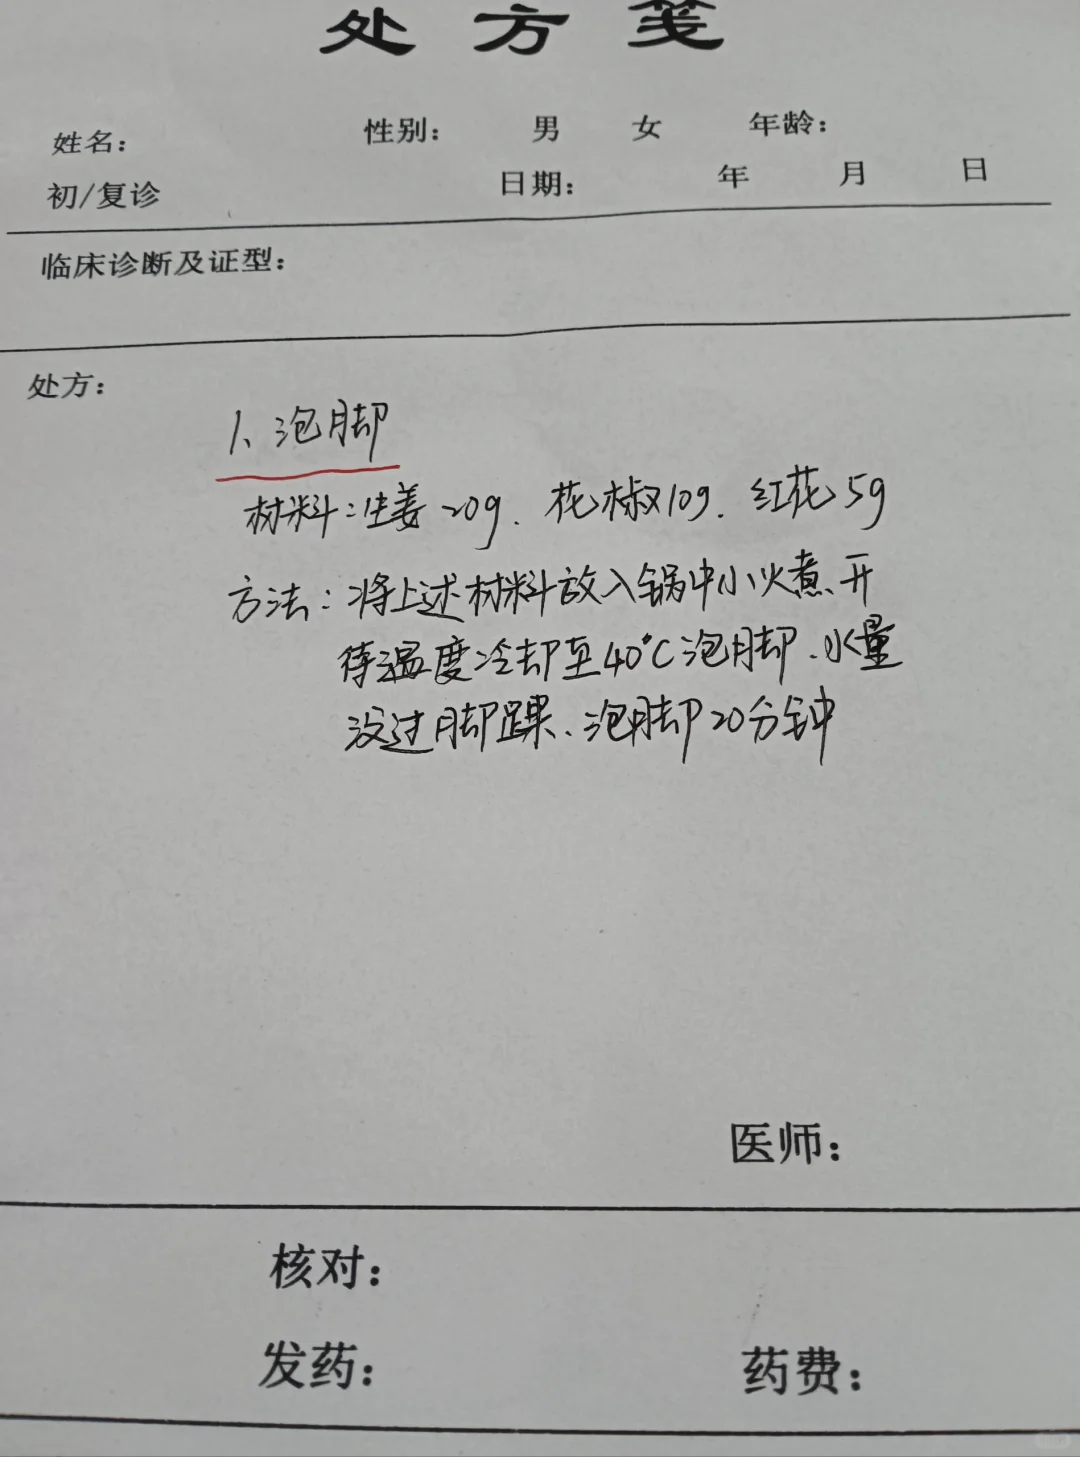 处方笺
姓名： 性别： 男 女 年龄：
初/复诊 日期： 年 月 日
临床诊断及证型：
处方：
1、泡脚
材料：生姜20g、花椒10g、红花5g
方法：将上述材料放入锅中小火煮开
待温度冷却至40°C泡脚、水量
没过脚踝、泡脚20分钟
医师：
核对：
发药： 药费：